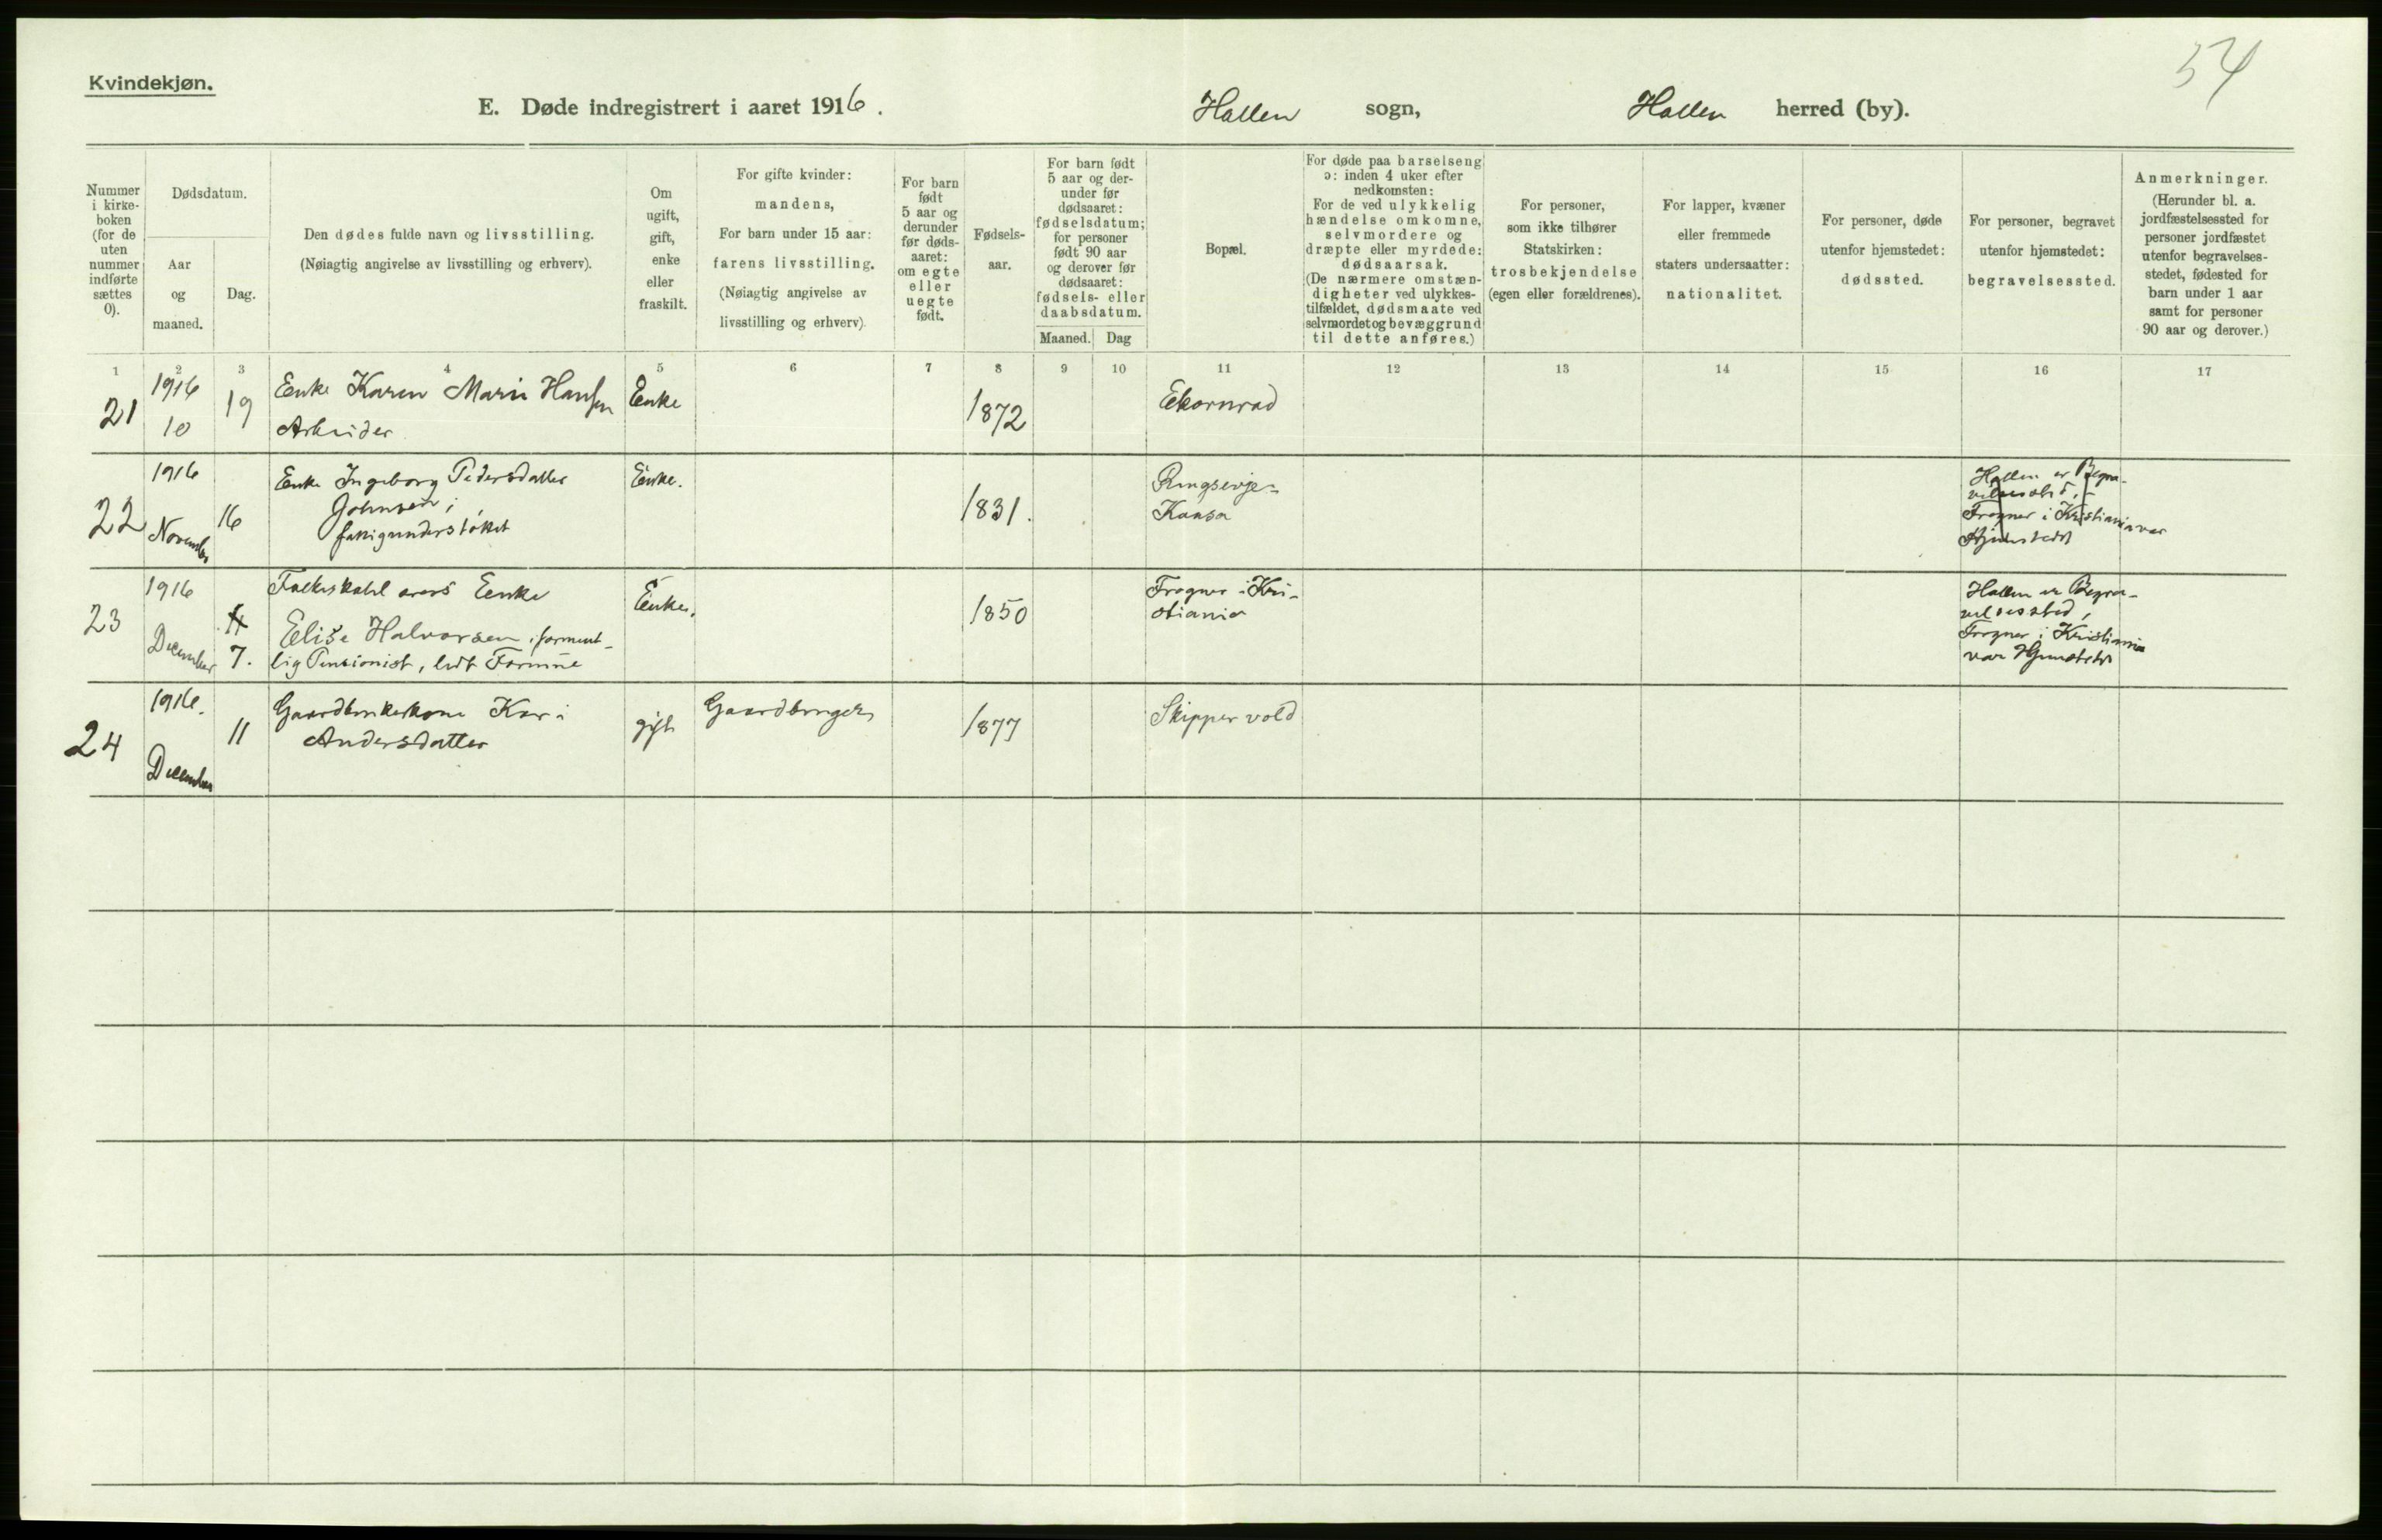 54
Kvindekjøn.
E. Døde indregistrert i aaret 1916. Hallen sogn, Hallen herred (by).
Nummer i kirke-boken (for de uten nummer indførte sættes 0).
Dødsdatum.
Aar og maaned.
Dag.
Den dødes fulde navn og livsstilling.
(Nøiagtig angivelse av livsstilling og erhverv).
Om ugift, gift, enke eller fraskilt.
For gifte kvinder:
mandens,
For barn under 15 aar:
farens livsstilling.
(Nøiagtig angivelse av
livsstilling og erhverv).
For barn født 5 aar og derunder før døds-aaret: om egte eller uegte født.
Fødsels-aar.
For barn født
5 aar og der-
under før
dødsaaret:
fødselsdatum;
for personer
født 90 aar
og derover før
dødsaaret:
fødsels- eller
daabsdatum.
Maaned. Dag
Bopæl.
For døde paa barselseng
ɔ: inden 4 uker efter
nedkomsten:
For de ved ulykkelig
hændelse omkomne,
selvmordere og
dræpte eller myrdede:
dødsaarsak.
(De nærmere omstæn-
digheter ved ulykkes-
tilfældet, dødsmaate ved
selvmordet og bevæggrund
til dette anføres.)
For personer,
som ikke tilhører
Statskirken:
trosbekjendelse
(egen eller forældrenes).
For lapper, kvæner
eller fremmede
staters undersaatter:
nationalitet.
For personer, døde
utenfor hjemstedet:
dødssted.
For personer, begravet
utenfor hjemstedet:
begravelsessted.
Anmerkninger.
(Herunder bl. a.
jordfæstelsessted for
personer jordfæstet
utenfor begravelses-
stedet, fødested for
barn under 1 aar
samt for personer
90 aar og derover.)
1 2 3 4 5 6 7 8 9 10 11 12 13 14 15 16 17
21 1916 10 19 Enke Karen Marie Hansen Enke 1872 Ekornrad
Arbeider
22 1916 November 16 Enke Ingeborg Pedersdatter Enke. 1831.
Johnsen;
fattigunderstøttet
Hallen er Begra-
velsessted,
Frogner i Kristiania var
Hjemstedet
23 1916 December 7. Enke Enke. 1850 Frogner i Kri-
stiania
Elise Halvorsen,
lig Pensionist, lidt Formue
Hallen er Begra-
velsessted,
Frogner i Kristiania
var Hjemstedet
24 1916. December 11 Gaardbrukerkone Kari gift Gaardbruger 1877 Skippervold
Andersdatter